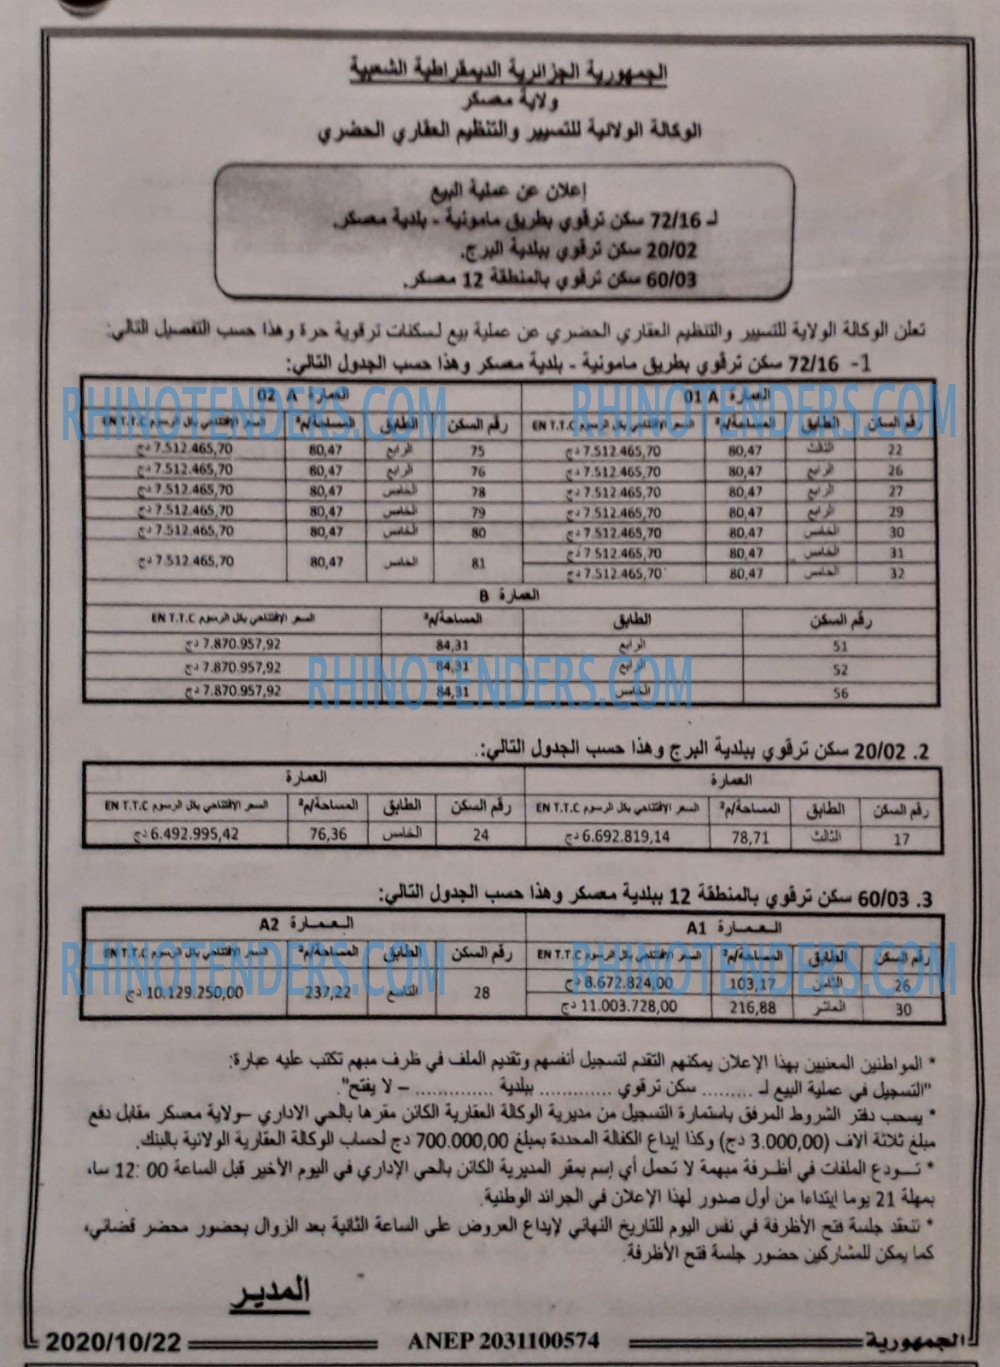 الجمهورية الجزائرية الديمقراطية الشعبية
ولاية معسكر
الوكالة الولائية للتسيير والتنظيم العقاري الحضري
إعلان عن عملية البيع
لـ 72/16 سكن ترقوي بطريق مامونية - بلدية معسكر.
20/02 سكن ترقوي ببلدية البرج.
60/03 سكن ترقوي بالمنطقة 12 معسكر.
تعلن الوكالة الولاية للتسيير والتنظيم العقاري الحضري عن عملية بيع لسكنات ترقوية حرة وهذا حسب التفصيل التالي:
1- 72/16 سكن ترقوي بطريق مامونية - بلدية معسكر وهذا حسب الجدول التالي:
العمارة 01 A العمارة 02 A
رقم السكن الطابق المساحة/م² السعر الإفتتاحي بكل الرسوم EN T.T.C رقم السكن الطابق المساحة/م² السعر الإفتتاحي بكل الرسوم EN T.T.C
22 الثالث 80,47 7.512.465,70 دج 75 الرابع 80,47 7.512.465,70 دج
26 الرابع 80,47 7.512.465,70 دج 76 الرابع 80,47 7.512.465,70 دج
27 الرابع 80,47 7.512.465,70 دج 78 الخامس 80,47 7.512.465,70 دج
29 الرابع 80,47 7.512.465,70 دج 79 الخامس 80,47 7.512.465,70 دج
30 الخامس 80,47 7.512.465,70 دج 80 الخامس 80,47 7.512.465,70 دج
31 الخامس 80,47 7.512.465,70 دج 81 الخامس 80,47 7.512.465,70 دج
32 الخامس 80,47 7.512.465,70 دج
العمارة B
رقم السكن الطابق المساحة/م² السعر الإفتتاحي بكل الرسوم EN T.T.C
51 الرابع 84,31 7.870.957,92 دج
52 الرابع 84,31 7.870.957,92 دج
56 الخامس 84,31 7.870.957,92 دج
2. 20/02 سكن ترقوي ببلدية البرج وهذا حسب الجدول التالي:
العمارة العمارة
رقم السكن الطابق المساحة/م² السعر الإفتتاحي بكل الرسوم EN T.T.C رقم السكن الطابق المساحة/م² السعر الإفتتاحي بكل الرسوم EN T.T.C
17 الثالث 78,71 6.692.819,14 دج 24 الخامس 76,36 6.492.995,42 دج
3. 60/03 سكن ترقوي بالمنطقة 12 ببلدية معسكر وهذا حسب الجدول التالي:
العمارة A1 العمارة A2
رقم السكن الطابق المساحة/م² السعر الإفتتاحي بكل الرسوم EN T.T.C رقم السكن الطابق المساحة/م² السعر الإفتتاحي بكل الرسوم EN T.T.C
26 الثامن 103,17 8.672.824,00 دج 28 التاسع 237,22 10.129.250,00 دج
30 العاشر 216,88 11.003.728,00 دج
* المواطنين المعنيين بهذا الإعلان يمكنهم التقدم لتسجيل أنفسهم وتقديم الملف في ظرف مبهم تكتب عليه عبارة:
"التسجيل في عملية البيع لـ ......... سكن ترقوي ............. ببلدية ............. – لا يفتح".
* يسحب دفتر الشروط المرفق باستمارة التسجيل من مديرية الوكالة العقارية الكائن مقرها بالحي الاداري –ولاية معسكر مقابل دفع
مبلغ ثلاثة ألاف (3.000,00 دج) وكذا إيداع الكفالة المحددة بمبلغ 700.000,00 دج لحساب الوكالة العقارية الولائية بالبنك.
* تـــودع الملفات في أظرفة مبهمة لا تحمل أي إسم بمقر المديرية الكائن بالحي الإداري في اليوم الأخير قبل الساعة 12:00 سا،
بمهلة 21 يوما إبتداءا من أول صدور لهذا الإعلان في الجرائد الوطنية.
* تنعقد جلسة فتح الأظرفة في نفس اليوم للتاريخ النهائي لإيداع العروض على الساعة الثانية بعد الزوال بحضور محضر قضائي،
كما يمكن للمشاركين حضور جلسة فتح الأظرفة.
المدير
الجمهورية ANEP 2031100574 2020/10/22
RHINOTENDERS.COM RHINOTENDERS.COM
RHINOTENDERS.COM
RHINOTENDERS.COM RHINOTENDERS.COM